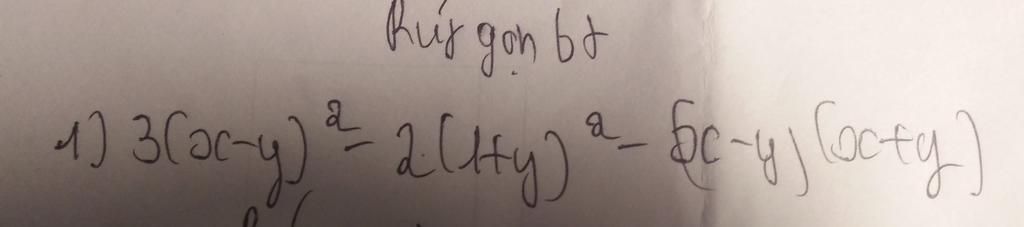 Rút gọn bt
1) 3(x-y)² - 2(1+y)² - (x-y)(x+y)